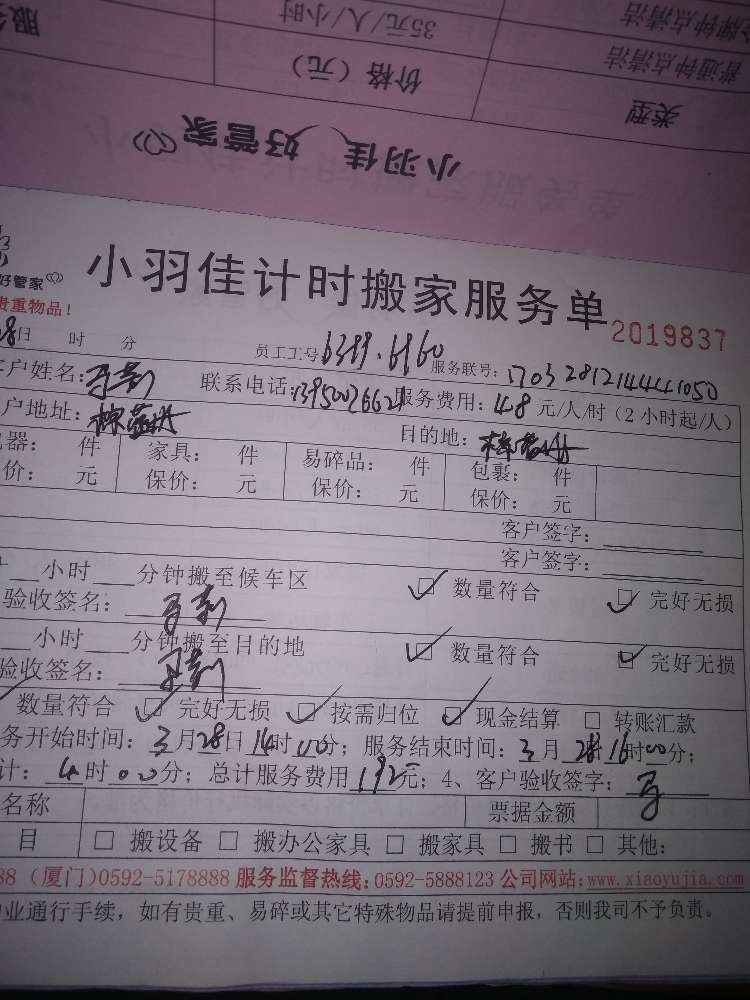 服
35元/人/小时
金牌钟点清洁
价格（元）
普通钟点清洁
类型
小羽佳 好管家
好管家
小羽佳计时搬家服务单
贵重物品！
2019837
28日 时 分 员工工号6399.6960 服务联号：1703281214441050
客户姓名： 联系电话： 服务费用：48元/人/时（2小时起/人）
户地址： 目的地：
器： 件 家具： 件 易碎品： 件 包裹： 件
价： 元 保价： 元 保价： 元 保价： 元
客户签字：
客户签字：
小时 分钟搬至候车区 数量符合 完好无损
验收签名：
小时 分钟搬至目的地 数量符合 完好无损
验收签名：
数量符合 完好无损 按需归位 现金结算 转账汇款
务开始时间：3月28日14时00分；服务结束时间：3月28日16时00分；
计：4时00分；总计服务费用192元；4、客户验收签字：
名称 票据金额
目 搬设备 搬办公家具 搬家具 搬书 其他：
88（厦门）0592-5178888 服务监督热线：0592-5888123 公司网站：www.xiaoyujia.com
业通行手续，如有贵重、易碎或其它特殊物品请提前申报，否则我司不予负责。